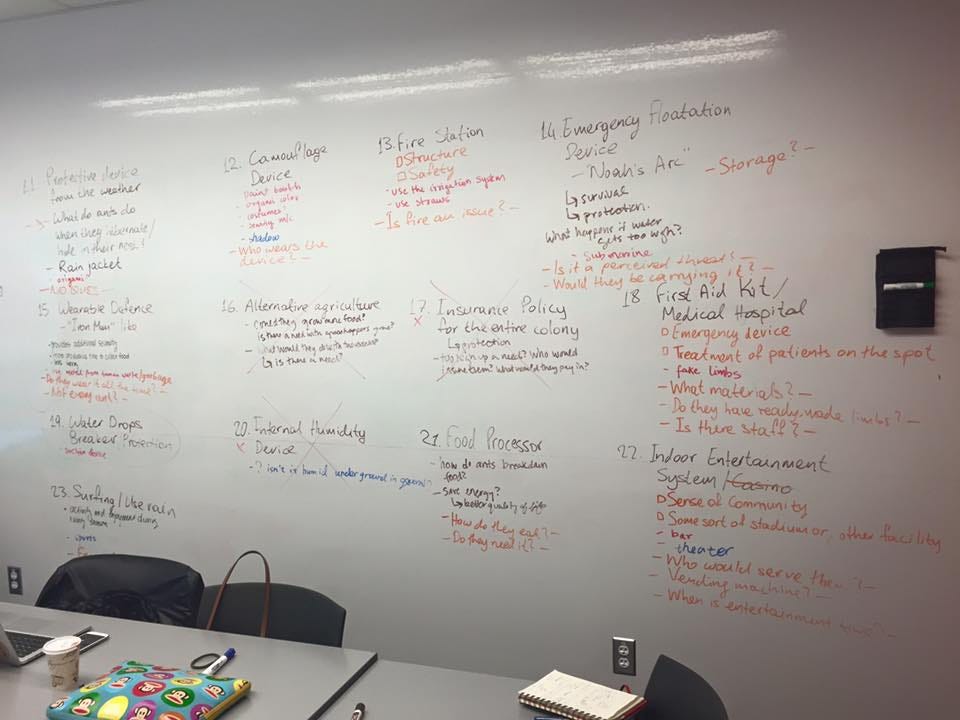 11. Protective device
from the weather
- What do ants do
when they hibernate/
hide in their nest?
- Rain jacket
- origami
- NO ISSUE -
12. Camouflage
Device
- paint booth
- organic color
- costumes?
- shadow
- Who wears the
device? -
13. Fire Station
Structure
Safety
- use the irrigation system
- use straws
- Is fire an issue? -
14. Emergency Floatation
Device
- "Noah's Arc"
- Storage? -
↳ survival
↳ protection.
What happens if water
gets too high?
- submarine
- Is it a perceived threat? -
- Would they be carrying it? -
15. Wearable Defence
- "Iron Man" like
- provides additional security
- Do they wear it all the time? -
- Not every ant? -
16. Alternative agriculture
- could they grow more food?
- what would they do with
↳ is there a need?
17. Insurance Policy
x
for the entire colony
↳ protection
- too high up a need? Who would
insure them? What would they pay in?
18 First Aid Kit /
Medical Hospital
Emergency device
Treatment of patients on the spot
- fake limbs
- What materials? -
- Do they have ready-made limbs? -
- Is there staff? -
19. Water Drops
Breaker Protection
- suction device
20. Internal Humidity
x Device
- ? isn't it humid underground in general
21. Food Processor
- how do ants breakdown
food?
- save energy?
↳ better quality of life
- How do they eat? -
- Do they need it? -
22. Indoor Entertainment
System / Casino
Sense of Community
Some sort of stadium or other facility
- bar
- theater
- Who would serve them? -
- Vending machine? -
- When is entertainment time? -
23. Surfing / Use rain
- activity and enjoyment during